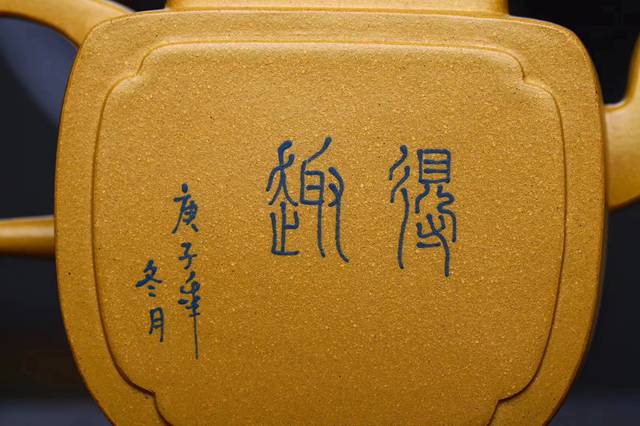 得趣
庚子年
冬月